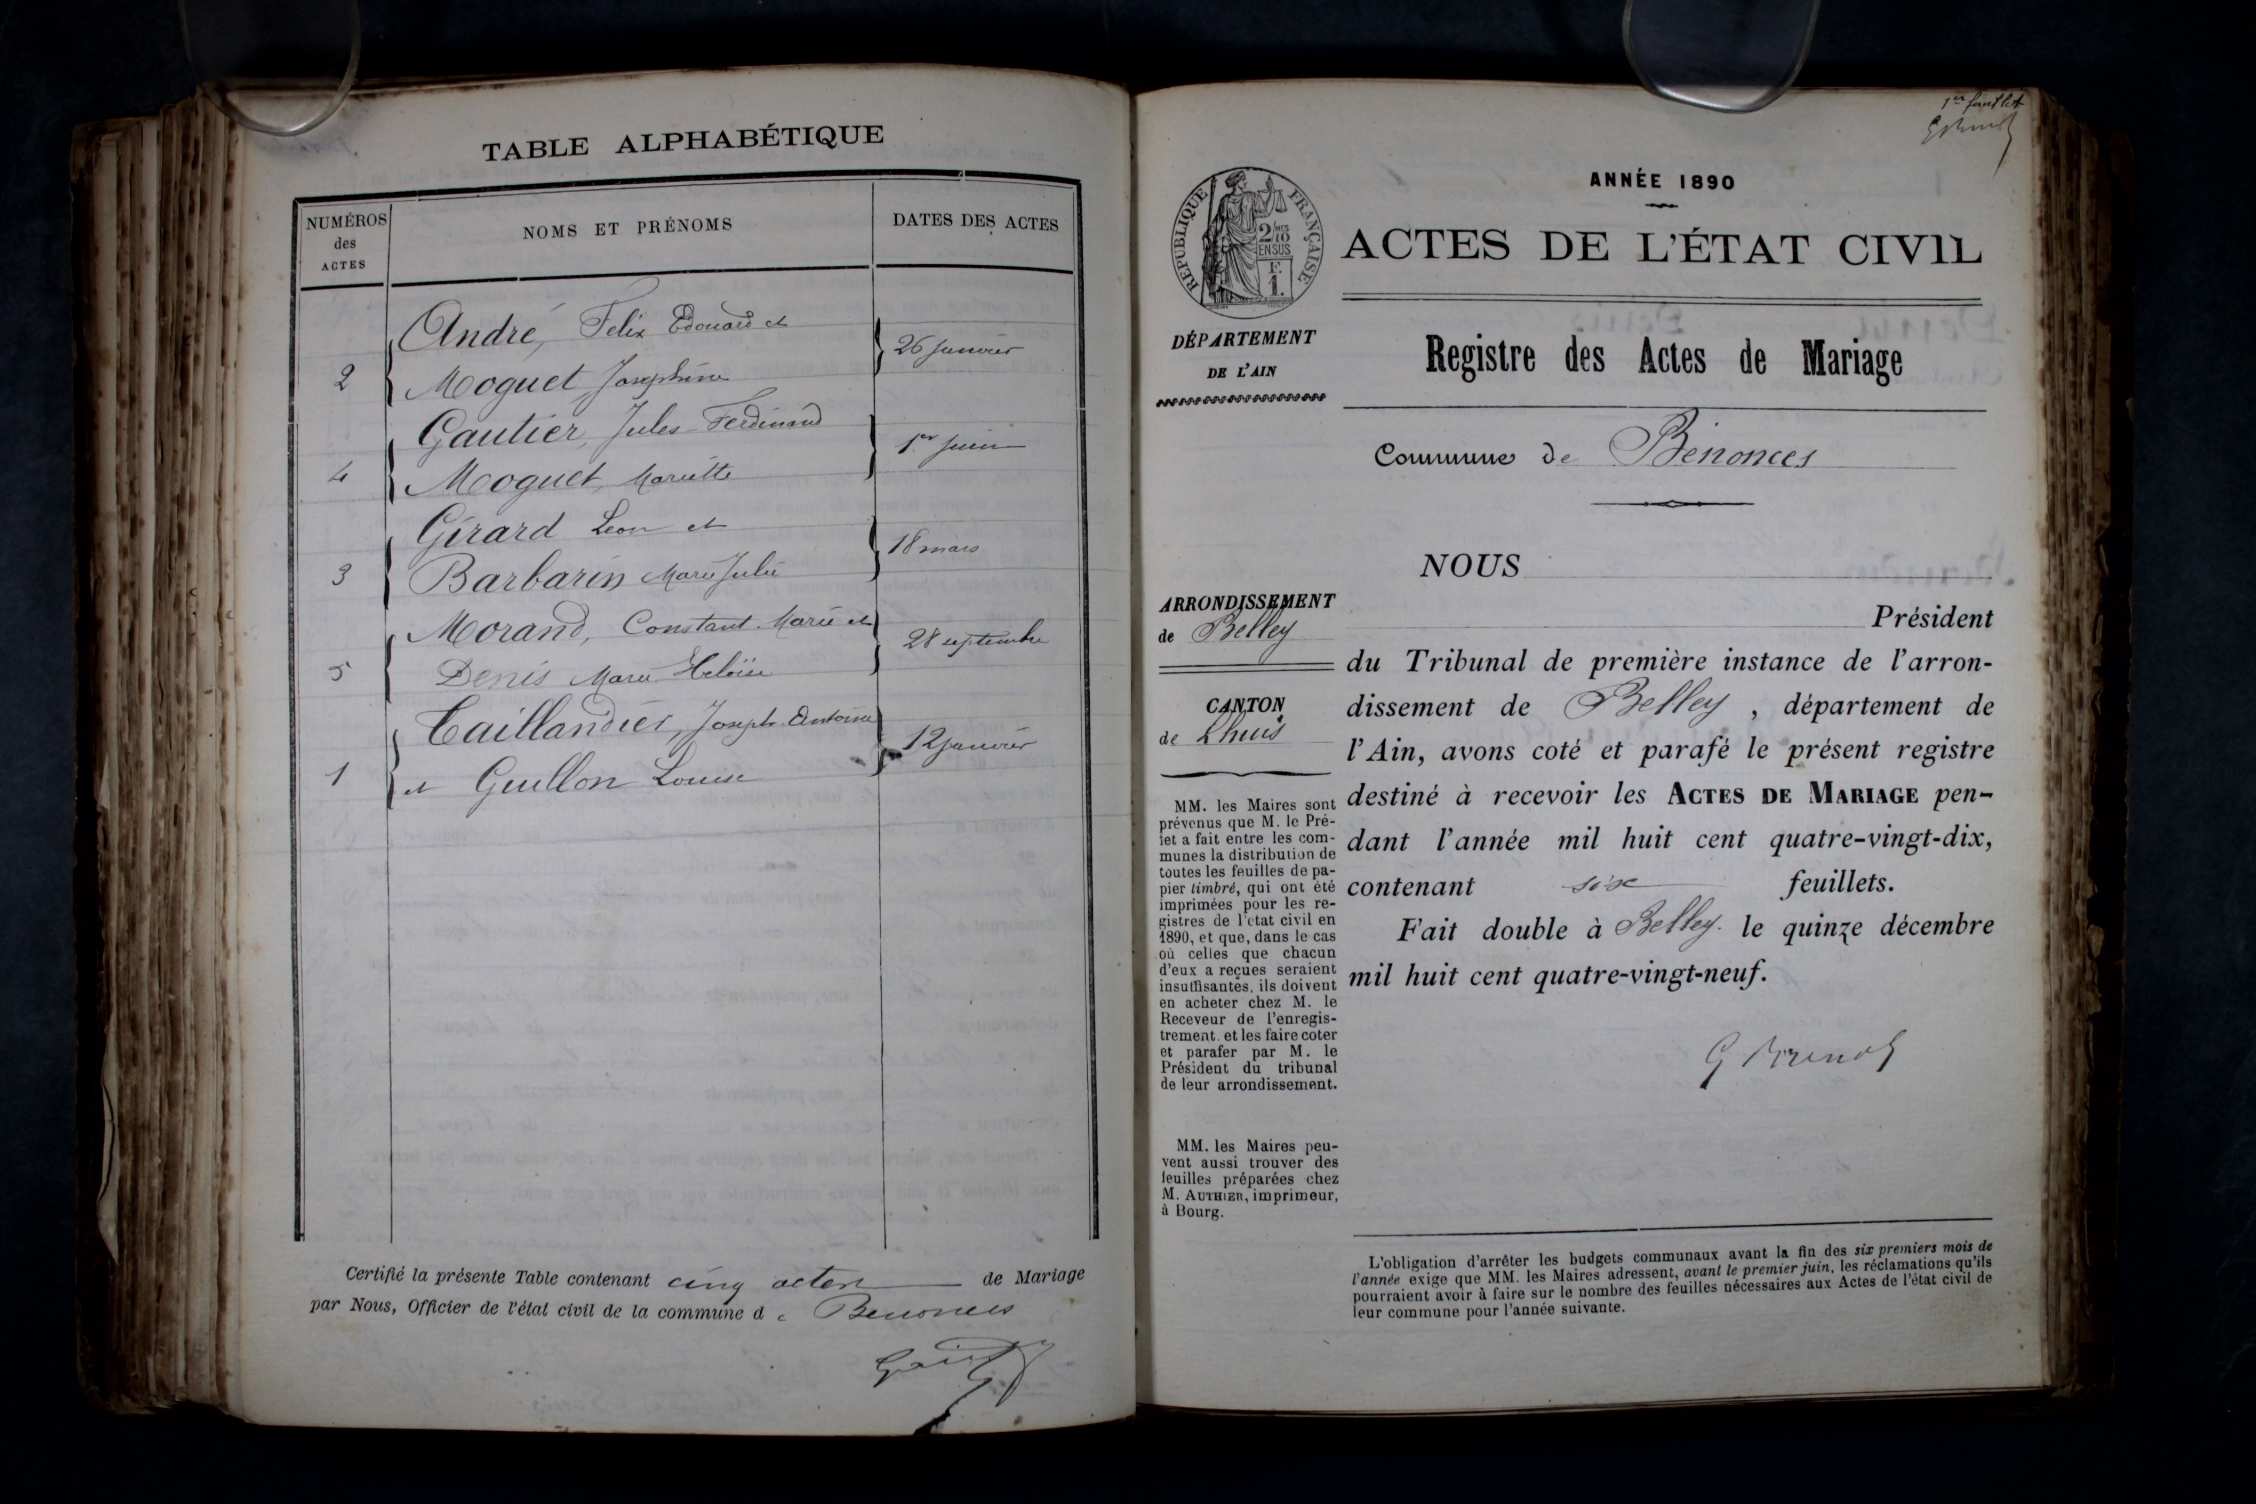 TABLE ALPHABÉTIQUE
NUMÉROS
des
ACTES
NOMS ET PRÉNOMS
DATES DES ACTES
André, Felix Edouard et
2 Moguet Joséphine
26 janvier
Gautier, Jules Ferdinand
4 Moguet, Mariette
1er juin
Girard Leon et
3 Barbarin Marie Julie
18 mars
Morand, Constant Marie et
5 Denis Marie Heloïse
28 septembre
Taillandier, Joseph Antoine
1 et Guillon Louise
12 janvier
Certifié la présente Table contenant cinq actes de Mariage
par Nous, Officier de l'état civil de la commune de Benonces
1er feuillet
ANNÉE 1890
RÉPUBLIQUE FRANÇAISE
2/10
EN SUS
F.
1.
ACTES DE L'ÉTAT CIVIL
DÉPARTEMENT
DE L'AIN
Registre des Actes de Mariage
Commune de Bénonces
NOUS
Président
ARRONDISSEMENT
de Belley
CANTON
de Lhuis
du Tribunal de première instance de l'arron-
dissement de Belley, département de
l'Ain, avons coté et parafé le présent registre
destiné à recevoir les ACTES DE MARIAGE pen-
dant l'année mil huit cent quatre-vingt-dix,
contenant six feuillets.
Fait double à Belley. le quinze décembre
mil huit cent quatre-vingt-neuf.
MM. les Maires sont
prévenus que M. le Pré-
fet a fait entre les com-
munes la distribution de
toutes les feuilles de pa-
pier timbré, qui ont été
imprimées pour les re-
gistres de l'état civil en
1890, et que, dans le cas
où celles que chacun
d'eux a reçues seraient
insuffisantes, ils doivent
en acheter chez M. le
Receveur de l'enregis-
trement. et les faire coter
et parafer par M. le
Président du tribunal
de leur arrondissement.
MM. les Maires peu-
vent aussi trouver des
feuilles préparées chez
M. AUTHIER, imprimeur,
à Bourg.
L'obligation d'arrêter les budgets communaux avant la fin des six premiers mois de
l'année exige que MM. les Maires adressent, avant le premier juin, les réclamations qu'ils
pourraient avoir à faire sur le nombre des feuilles nécessaires aux Actes de l'état civil de
leur commune pour l'année suivante.